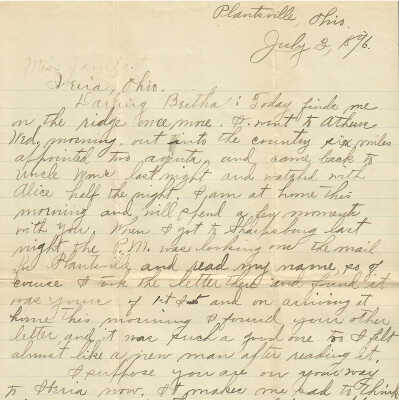 Plantsville, Ohio.
July 3, 1896.
Iberia, Ohio.
Darling Bertha: Today finds me
on the ridge once more. I went to Athens
Wed. morning. out into the country six miles
appointed two agents, and came back to
Uncle last night and watched with
Alice half the night. I am at home this
morning and will spend a few moments
with you. When I got to Sharpsburg last
night the P.M. was looking over the mail
for Plantsville and read my name, so of
course I took the letter then and found it
was yours of 1st and on arriving
home this morning I found your other
letter and it was such a good one too I felt
almost like a new man after reading it.
I suppose you are on your way
to Iberia now. It makes me sad to think